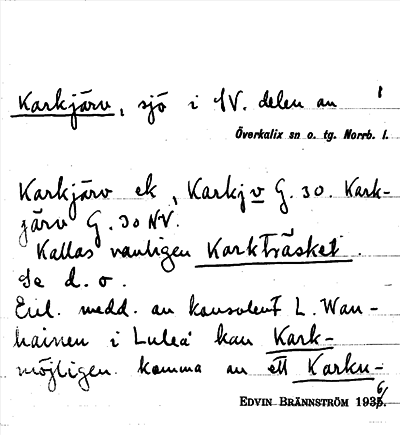 Karkjärv, sjö i SV. delen av 1
Överkalix sn o. tg. Norrb. l.
Karkjärv ek, Karkjv G. 30. Kark-
järv G. 30 NV.
Kallas vanligen Karkträsket.
Se d. o.
Enl. medd. av konsulent L. Wan-
hainen i Luleå kan Kark-
möjligen komma av ett Karku-
EDVIN BRÄNNSTRÖM 1936.